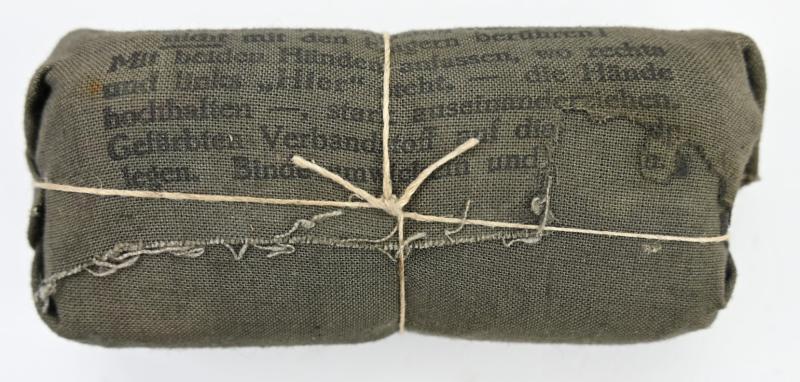 nicht mit den Fingern berühren!
Mit beiden Händen anfassen, wo rechts
und links „Hier" steht, — die Hände
hochhalten —, stark auseinanderziehen.
Gefärbten Verbandstoff auf die
legen. Binde umwickeln und